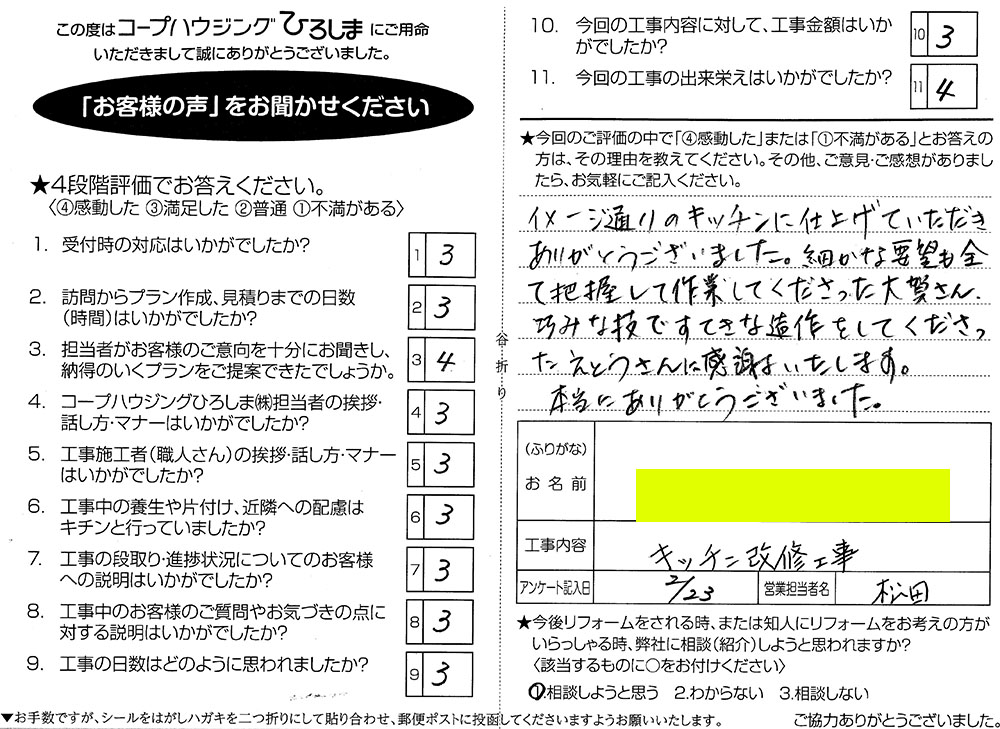 この度はコープハウジングひろしまにご用命
いただきまして誠にありがとうございました。
「お客様の声」をお聞かせください
★4段階評価でお答えください。
〈④感動した ③満足した ②普通 ①不満がある〉
1. 受付時の対応はいかがでしたか?
1 3
2. 訪問からプラン作成、見積りまでの日数
（時間）はいかがでしたか?
2 3
3. 担当者がお客様のご意向を十分にお聞きし、
納得のいくプランをご提案できたでしょうか。
3 4
4. コープハウジングひろしま㈱担当者の挨拶・
話し方・マナーはいかがでしたか?
4 3
5. 工事施工者（職人さん）の挨拶・話し方・マナー
はいかがでしたか?
5 3
6. 工事中の養生や片付け、近隣への配慮は
キチンと行っていましたか?
6 3
7. 工事の段取り・進捗状況についてのお客様
への説明はいかがでしたか?
7 3
8. 工事中のお客様のご質問やお気づきの点に
対する説明はいかがでしたか?
8 3
9. 工事の日数はどのように思われましたか?
9 3
谷折り
10. 今回の工事内容に対して、工事金額はいか
がでしたか?
10 3
11. 今回の工事の出来栄えはいかがでしたか?
11 4
★今回のご評価の中で「④感動した」または「①不満がある」とお答えの
方は、その理由を教えてください。その他、ご意見・ご感想がありまし
たら、お気軽にご記入ください。
イメージ通りのキッチンに仕上げていただき
ありがとうございました。細かな要望も全
て把握して作業してくださった大賀さん、
巧みな技ですてきな造作をしてくださっ
たえとうさんに感謝いたします。
本当にありがとうございました。
（ふりがな）
お名前
工事内容 キッチン改修工事
アンケート記入日 2/23 営業担当者名 松田
★今後リフォームをされる時、または知人にリフォームをお考えの方が
いらっしゃる時、弊社に相談（紹介）しようと思われますか?
〈該当するものに○をお付けください〉
1.相談しようと思う 2.わからない 3.相談しない
▼お手数ですが、シールをはがしハガキを二つ折りにして貼り合わせ、郵便ポストに投函してくださいますようお願いいたします。
ご協力ありがとうございました。